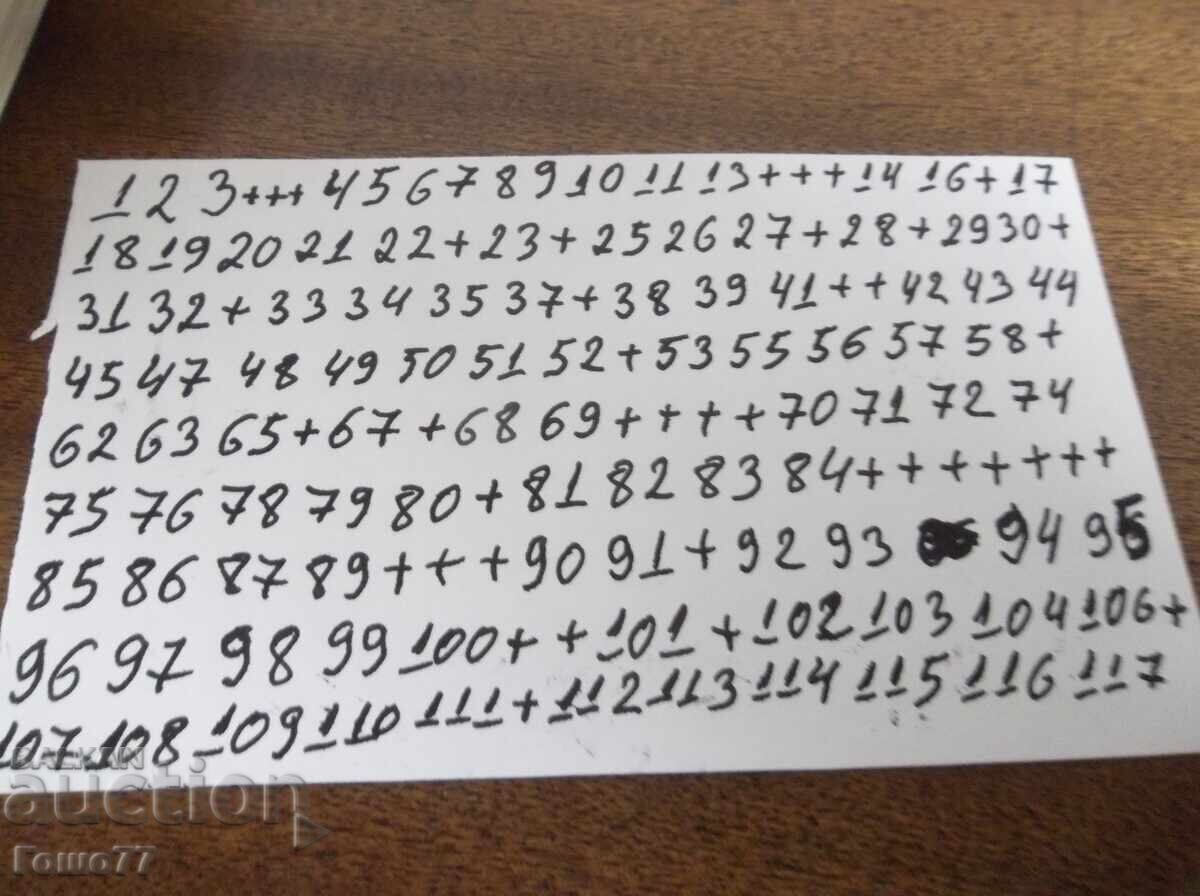 1 2 3+++ 4 5 6 7 8 9 10 11 13+++14 16+17
18 19 20 21 22+23+25 26 27+28+29 30+
31 32+33 34 35 37+38 39 41++42 43 44
45 47 48 49 50 51 52+53 55 56 57 58+
62 63 65+67+68 69++++70 71 72 74
75 76 78 79 80+81 82 83 84+++++++
85 86 87 89+++90 91+92 93 94 95
96 97 98 99 100++101+102 103 104 106+
107 108 109 110 111+112 113 114 115 116 117
BALKAN
auction
Гошо77